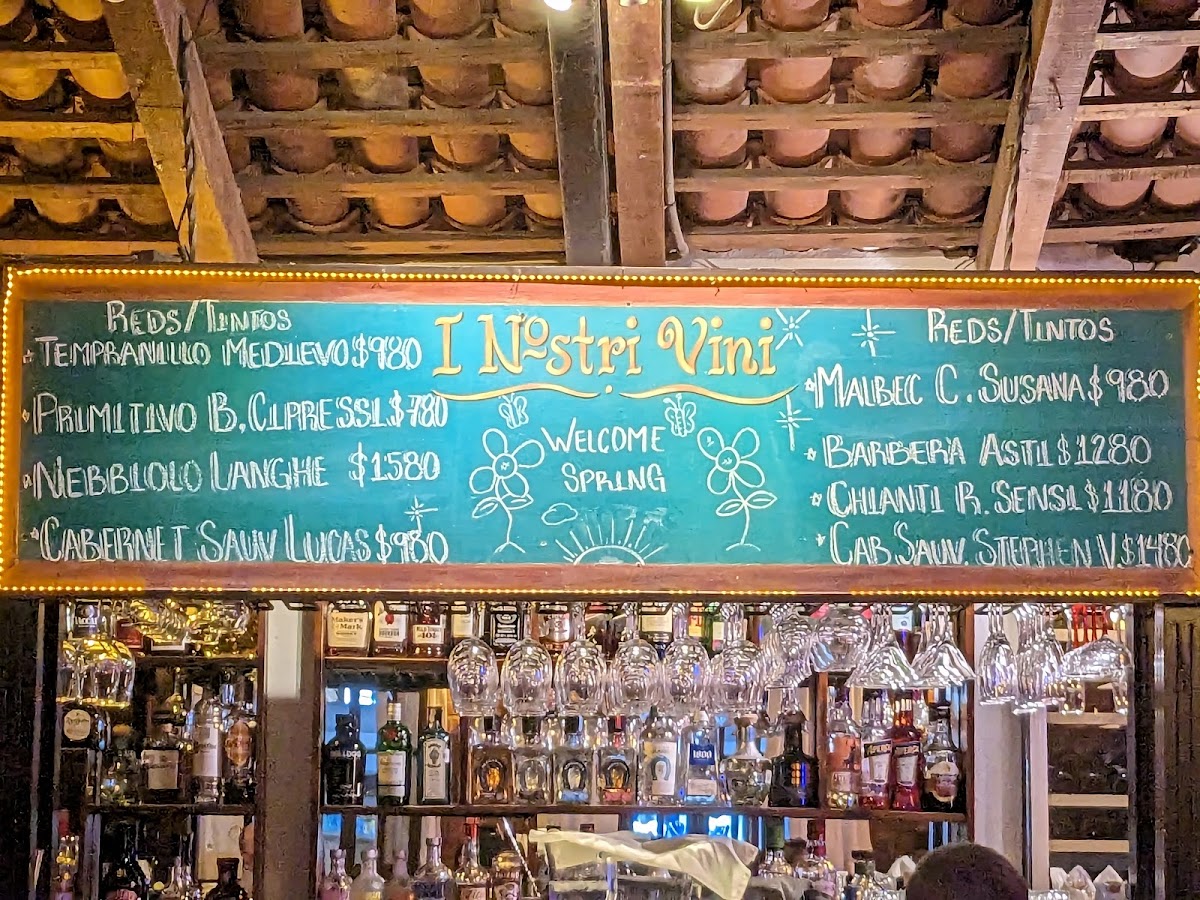 REDS/TINTOS
TEMPRANILLO MEDIEVO $980
PRIMITIVO B. CIPRESSI $780
NEBBIOLO LANGHE $1580
CABERNET SAUV LUCAS $980
I Nostri Vini
WELCOME
SPRING
REDS/TINTOS
MALBEC C. SUSANA $980
BARBERA ASTI $1280
CHIANTI R. SENSI $1180
CAB SAUV. STEPHEN V $1480
Maker's
Mark
101
BULLDOG
1800
APEROL